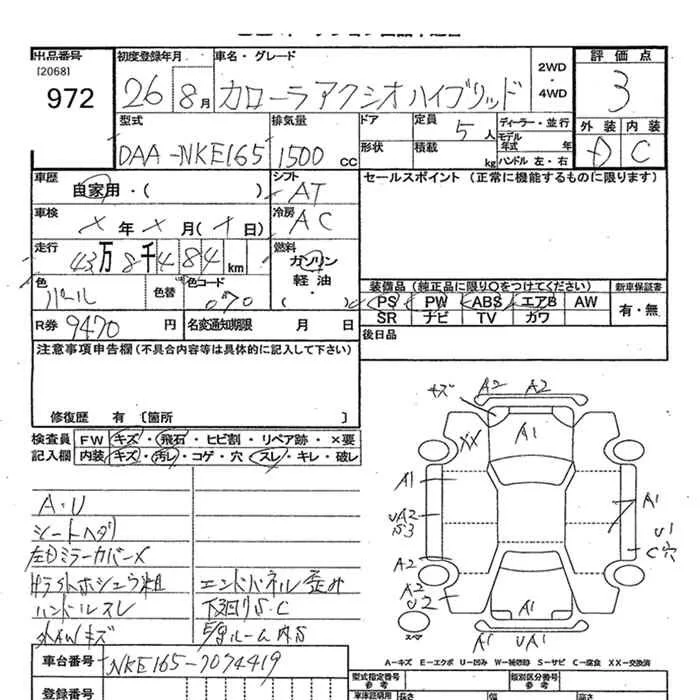 出品番号
[2068]
972
初度登録年月
26 8月
車名・グレード
カローラアクシオハイブリッド
2WD
・
4WD
評価点
3
外装 内装
D C
型式
DAA-NKE165
排気量
1500 CC
ドア
定員 5人
ディーラー・並行
モデル年式 年
形状
積載 kg
ハンドル 左・右
車歴
自家用・( )
シフト
AT
セールスポイント (正常に機能するものに限ります)
車検
X年X月(X日)
冷房
AC
走行
43万8千484km
燃料
ガソリン
軽油
( )
色
パール
色替
色コード
070
装備品(純正品に限り○をつけてください)
新車保証書
PS PW ABS エアB AW
SR ナビ TV カワ
有・無
R券 9470円
名変通知期限 月 日
後日品
注意事項申告欄(不具合内容等は具体的に記入して下さい)
修復歴 有 〔箇所 〕
検査員 FW キズ・飛石・ヒビ割・リペア跡・×要
記入欄 内装 キズ・汚レ・コゲ・穴・スレ・キレ・破レ
A・U
シートヘタリ
左ドミラーカバーX
ハンドルスレ
エンドパネル歪み
下廻りS.C
外AWキズ
キズ A2 A2
XX A1
A1 A1
UA2 U1
S3 C穴
A2
A2
U2 A1
スペア
A1 UA1
A-キズ E-エクボ U-凹み W-補修跡 S-サビ C-腐食 XX-交換済
車台番号 NKE165-7074419
登録番号
型式指定番号
参考
類別区分番号
参考
車体証明用
参考
長さ
幅
高さ